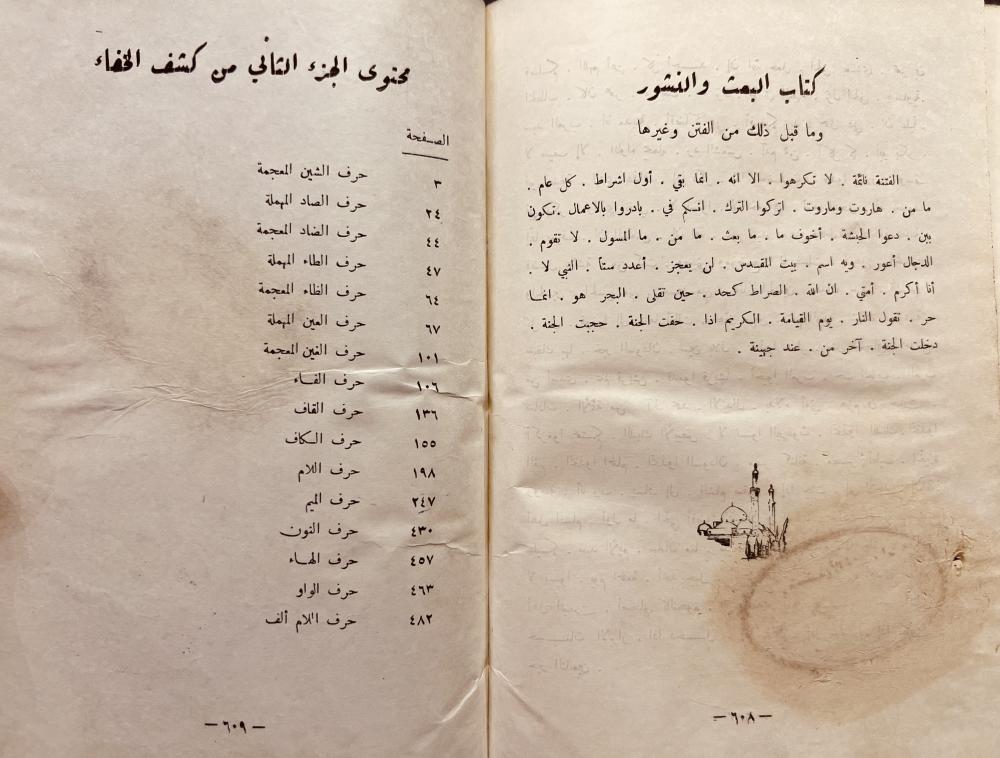 كتاب البعث والنشور
وما قبل ذلك من الفتن وغيرها
الفتنة نائمة . لا تكرهوا . الا انه . انما بقي . أول اشراط . كل عام .
ما من . هاروت وماروت . اتركوا الترك . انسكم في . بادروا بالاعمال . تكون
بين . دعوا الحبشة . أخوف ما . ما بعث . ما من . ما المسول . لا تقوم .
الدجال أعور . وبه اسم . بيت المقدس . لن يعجز . أعدد ستأ . النبي لا .
أنا أكرم . أمتي . ان الله . الصراط كحد . حين تقلى . البحر هو . انما
حر . تقول النار . يوم القيامة . الكريم اذا . حفت الجنة . حجبت الجنة .
دخلت الجنة . آخر من . عند جهينة .
— ٦٠٨ —
محتوى الجزء الثاني من كشف الخفاء
الصفحة
٣ حرف الشين المعجمة
٢٤ حرف الصاد المهملة
٤٤ حرف الضاد المعجمة
٤٧ حرف الطاء المهملة
٦٤ حرف الظاء المعجمة
٦٧ حرف العين المهملة
١٠١ حرف الغين المعجمة
١٠٦ حرف الفاء
١٣٦ حرف القاف
١٥٥ حرف الكاف
١٩٨ حرف اللام
٢٤٧ حرف الميم
٤٣٠ حرف النون
٤٥٧ حرف الهاء
٤٦٣ حرف الواو
٤٨٢ حرف اللام ألف
— ٦٠٩ —